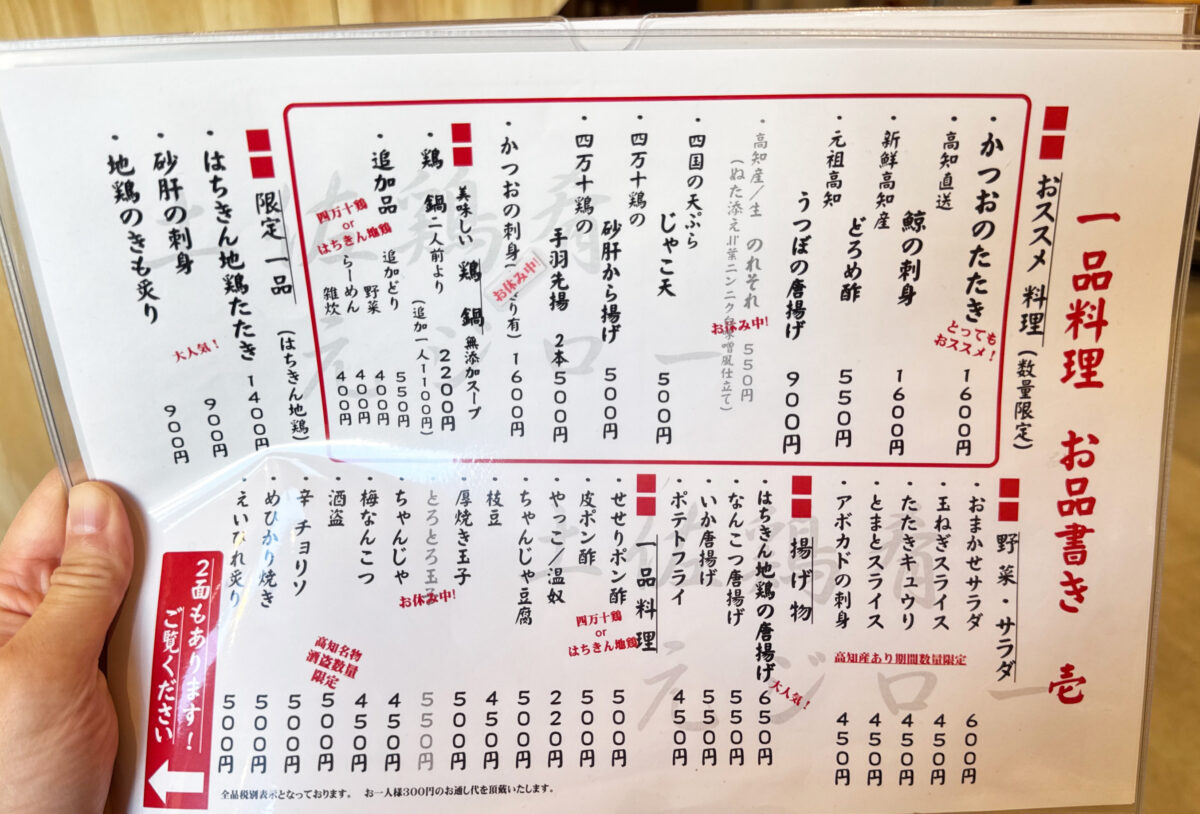 一品料理 お品書き 壱
おススメ 料理(数量限定)
・かつおのたたき 1600円
とっても
おススメ!
・高知直送
鯨の刺身 1600円
・新鮮高知産
どろめ酢 550円
・元祖高知
うつぼの唐揚げ 900円
・高知産/生 のれそれ 550円
お休み中!
・四国の天ぷら
じゃこ天 500円
・四万十鶏の
砂肝から揚げ 500円
・四万十鶏の
手羽先揚 2本 500円
・かつおの刺身 り有) 1600円
お休み中!
美味しい 鶏 鍋 無添加スープ
・鶏 鍋 二人前より 2200円
(追加一人1100円)
・追加品 追加どり 550円
野菜 400円
らーめん 400円
雑炊 400円
四万十鶏
or
はちきん地鶏
限定 一品 (はちきん地鶏)
・はちきん地鶏たたき 1400円
大人気!
・砂肝の刺身 900円
・地鶏のきも炙り 900円
野菜・サラダ
・おまかせサラダ 600円
・玉ねぎスライス 450円
・たたきキュウリ 450円
・とまとスライス 450円
・アボカドの刺身 450円
高知産あり期間数量限定
揚げ物
・はちきん地鶏の唐揚げ 650円
大人気!
・なんこつ唐揚げ 550円
・いか唐揚げ 550円
・ポテトフライ 450円
一品料理
・せせりポン酢 500円
四万十鶏
or
はちきん地鶏
・皮ポン酢 500円
・やっこ/温奴 220円
・ちゃんじゃ豆腐 500円
・枝豆 450円
・厚焼き玉子 500円
・とろとろ玉子 550円
お休み中!
・ちゃんじゃ 450円
・梅なんこつ 450円
・酒盗 500円
高知名物
酒盗数量
限定
・辛 チョリソ 500円
・めひかり焼き 500円
・えいひれ炙り 500円
2面もあります!
ご覧ください
全品税別表示となっております。 お一人様300円のお通し代を頂戴いたします。
土佐鶏肴
元ジロー
土佐鶏肴
元ジロー